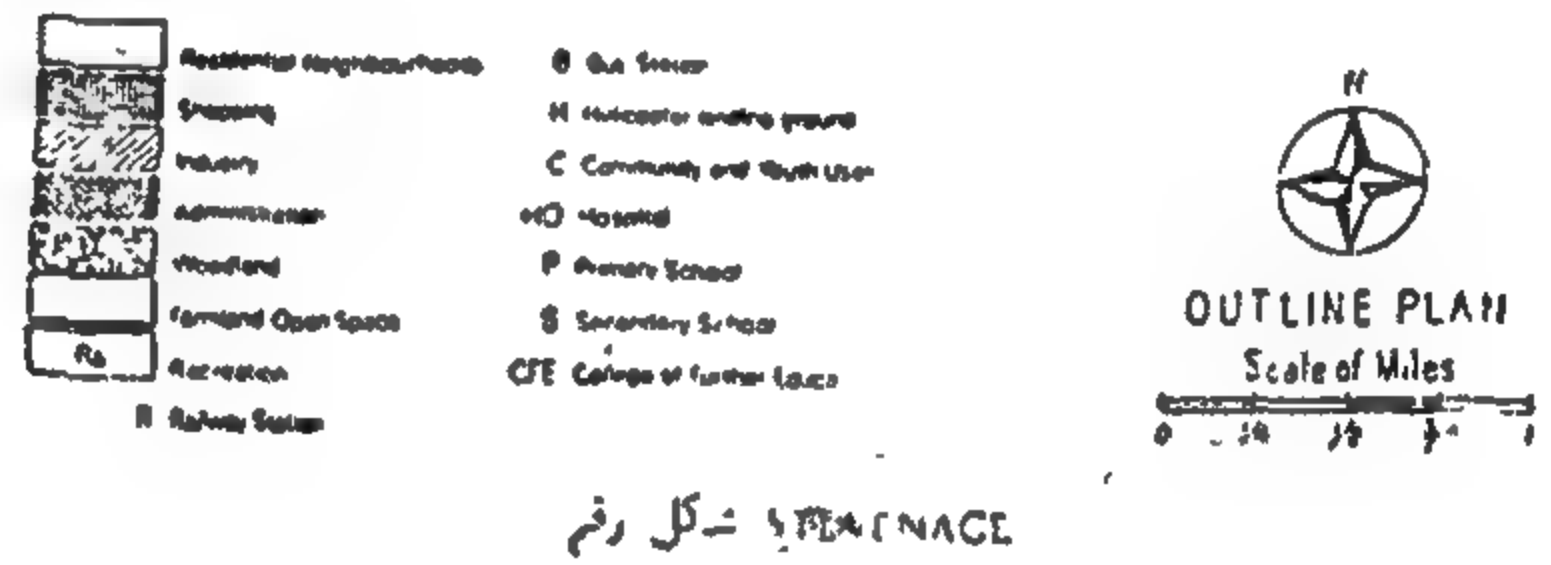 Residential Neighbourhoods
Shopping
Industry
Administration
Woodland
Farmland Open Space
Ro
Recreation
R Railway Station
B Bus Station
H Helicopter landing ground
C Community and Youth Uses
HO Hospital
P Primary School
S Secondary School
CFE College of Further Educa
N
OUTLINE PLAN
Scale of Miles
0 1/4 1/2 3/4 1
شكل رقم